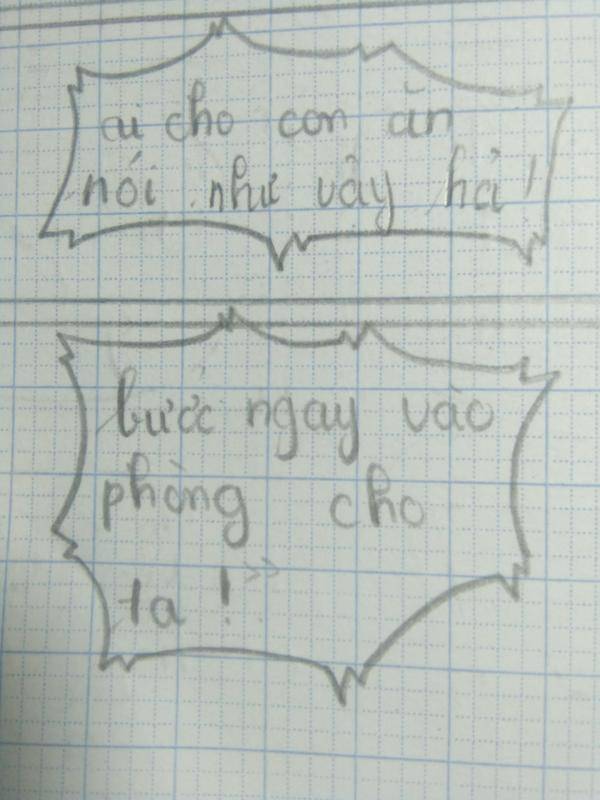 ai cho con ăn
nói như vậy hả!
bước ngay vào
phòng cho
ta!